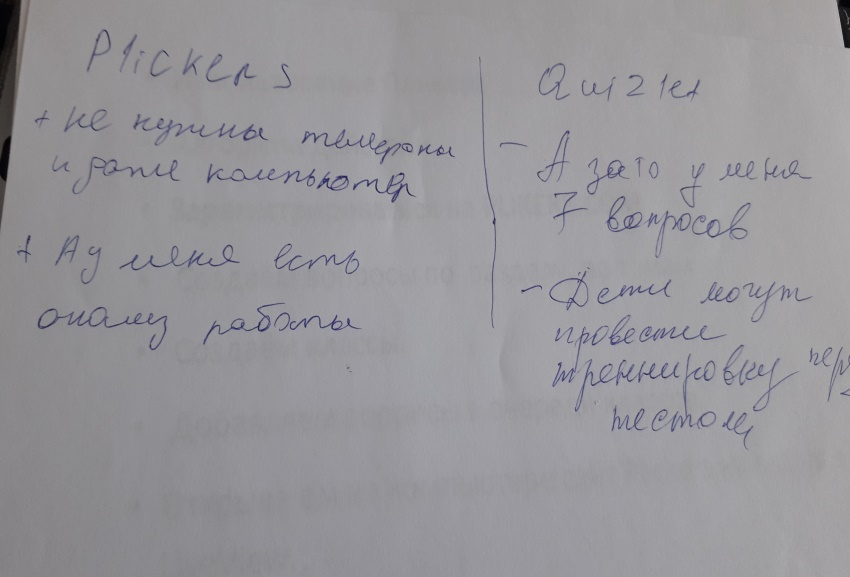 Plickers
+ не нужны телефоны
и даже компьютер
+ А у меня есть
анализ работы
Quizlet
- А зато у меня
7 вопросов
- Дети могут
провести
треннировку
тестом